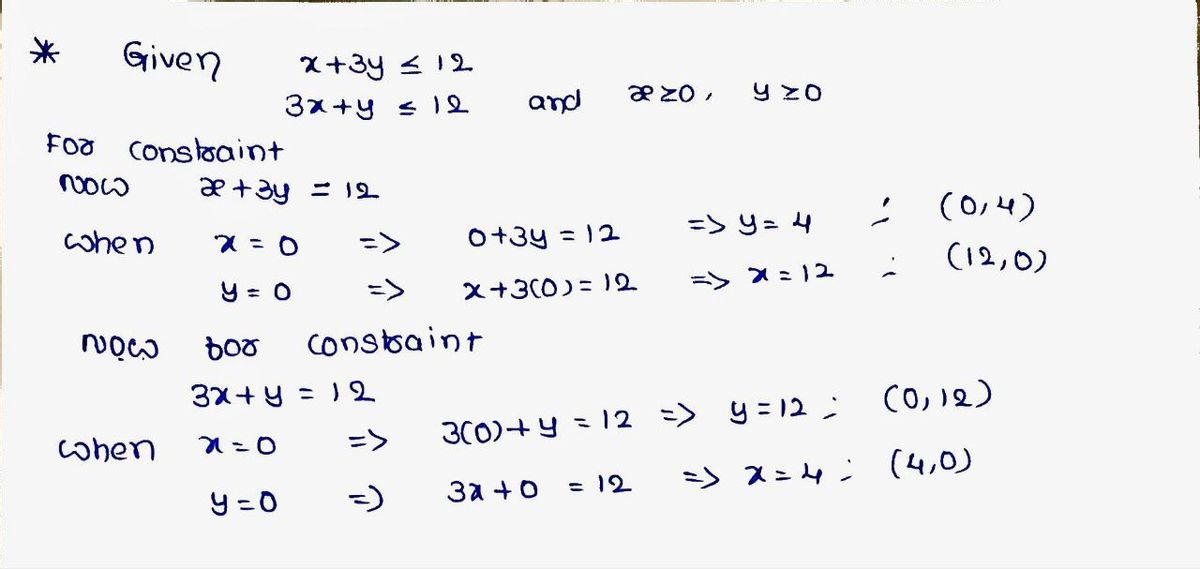 * Given x+3y ≤ 12
3x+y ≤ 12 and x ≥0, y ≥0
For constraint
Now x+3y = 12
when x = 0 => 0+3y = 12 => y = 4 ; (0,4)
y = 0 => x+3(0) = 12 => x = 12 ; (12,0)
Now for constraint
3x+y = 12
when x = 0 => 3(0)+y = 12 => y = 12 ; (0,12)
y = 0 => 3x+0 = 12 => x = 4 ; (4,0)